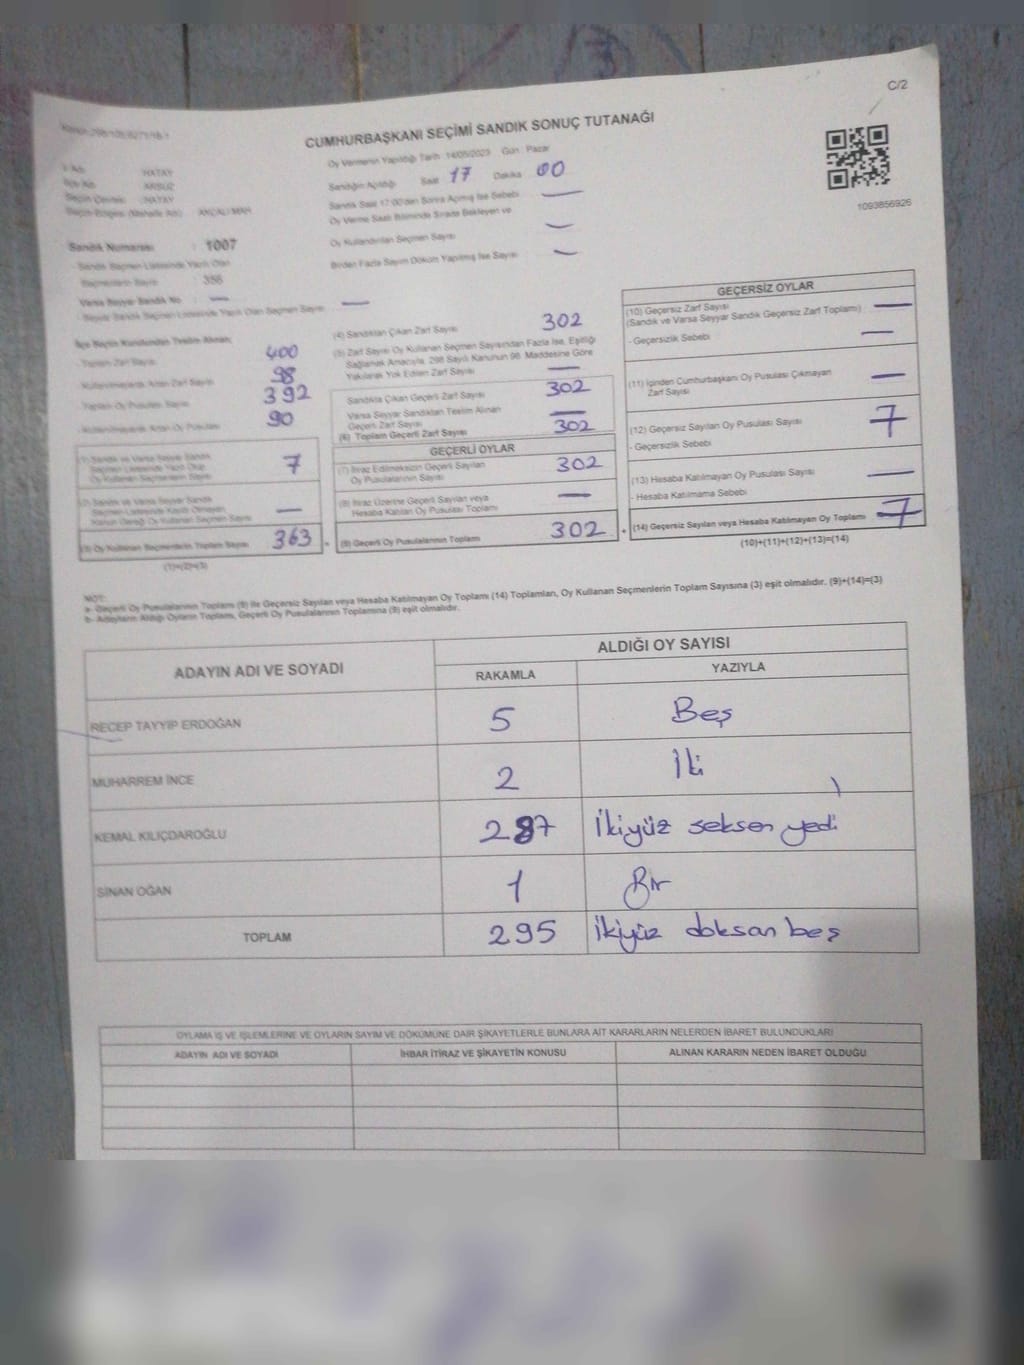 C/2
CUMHURBAŞKANI SEÇİMİ SANDIK SONUÇ TUTANAĞI
Oy Vermenin Yapıldığı Tarih 14/05/2023 Gün : Pazar
Sandığın Açıldığı Saat 17 Dakika 00
Sandık Saat 17:00'den Sonra Açılmış İse Sebebi —
Oy Verme Saati Bitiminde Sırada Bekleyen ve
Oy Kullandırılan Seçmen Sayısı —
Birden Fazla Sayım Döküm Yapılmış İse Sayısı —
1093856926
İl Adı HATAY
İlçe Adı ARSUZ
Seçim Çevresi : HATAY
Sandık Numarası : 1007
- Sandık Seçmen Listesinde Yazılı Olan
Seçmenlerin Sayısı : 356
Varsa Seyyar Sandık No : —
- Seyyar Sandık Seçmen Listesinde Yazılı Olan Seçmen Sayısı : —
İlçe Seçim Kurulundan Teslim Alınan;
- Toplam Zarf Sayısı 400
- Kullanılmayarak Artan Zarf Sayısı 98
- Toplam Oy Pusulası Sayısı 392
- Kullanılmayarak Artan Oy Pusulası 90
(1) Sandık ve Varsa Seyyar Sandık
Seçmen Listesinde Yazılı Olup
Oy Kullanan Seçmenlerin Sayısı 7
(2) Sandık ve Varsa Seyyar Sandık
Seçmen Listesinde Kaydı Olmayan,
Kanun Gereği Oy Kullanan Seçmen Sayısı —
(3) Oy Kullanan Seçmenlerin Toplam Sayısı 363
(1)+(2)=(3)
(4) Sandıktan Çıkan Zarf Sayısı 302
(5) Zarf Sayısı Oy Kullanan Seçmen Sayısından Fazla İse, Eşitliği
Sağlamak Amacıyla, 298 Sayılı Kanunun 98. Maddesine Göre
Yakılarak Yok Edilen Zarf Sayısı —
Sandıkta Çıkan Geçerli Zarf Sayısı 302
Varsa Seyyar Sandıktan Teslim Alınan
Geçerli Zarf Sayısı —
(6) Toplam Geçerli Zarf Sayısı 302
GEÇERLİ OYLAR
(7) İtiraz Edilmeksizin Geçerli Sayılan
Oy Pusulalarının Sayısı 302
(8) İtiraz Üzerine Geçerli Sayılan veya
Hesaba Katılan Oy Pusulası Toplamı —
(9) Geçerli Oy Pusulalarının Toplamı 302 +
GEÇERSİZ OYLAR
(10) Geçersiz Zarf Sayısı
(Sandık ve Varsa Seyyar Sandık Geçersiz Zarf Toplamı) —
- Geçersizlik Sebebi —
(11) İçinden Cumhurbaşkanı Oy Pusulası Çıkmayan
Zarf Sayısı —
(12) Geçersiz Sayılan Oy Pusulası Sayısı 7
- Geçersizlik Sebebi
(13) Hesaba Katılmayan Oy Pusulası Sayısı —
- Hesaba Katılmama Sebebi
(14) Geçersiz Sayılan veya Hesaba Katılmayan Oy Toplamı 7
(10)+(11)+(12)+(13)=(14)
NOT:
a- Geçerli Oy Pusulalarının Toplamı (9) ile Geçersiz Sayılan veya Hesaba Katılmayan Oy Toplamı (14) Toplamları, Oy Kullanan Seçmenlerin Toplam Sayısına (3) eşit olmalıdır. (9)+(14)=(3)
b- Adayların Aldığı Oyların Toplamı, Geçerli Oy Pusulalarının Toplamına (9) eşit olmalıdır.
ADAYIN ADI VE SOYADI ALDIĞI OY SAYISI
RAKAMLA YAZIYLA
RECEP TAYYİP ERDOĞAN 5 Beş
MUHARREM İNCE 2 İki
KEMAL KILIÇDAROĞLU 287 İkiyüz seksen yedi
SİNAN OĞAN 1 Bir
TOPLAM 295 İkiyüz doksan beş
OYLAMA İŞ VE İŞLEMLERİNE VE OYLARIN SAYIM VE DÖKÜMÜNE DAİR ŞİKAYETLERLE BUNLARA AİT KARARLARIN NELERDEN İBARET BULUNDUKLARI
ADAYIN ADI VE SOYADI İHBAR İTİRAZ VE ŞİKAYETİN KONUSU ALINAN KARARIN NEDEN İBARET OLDUĞU